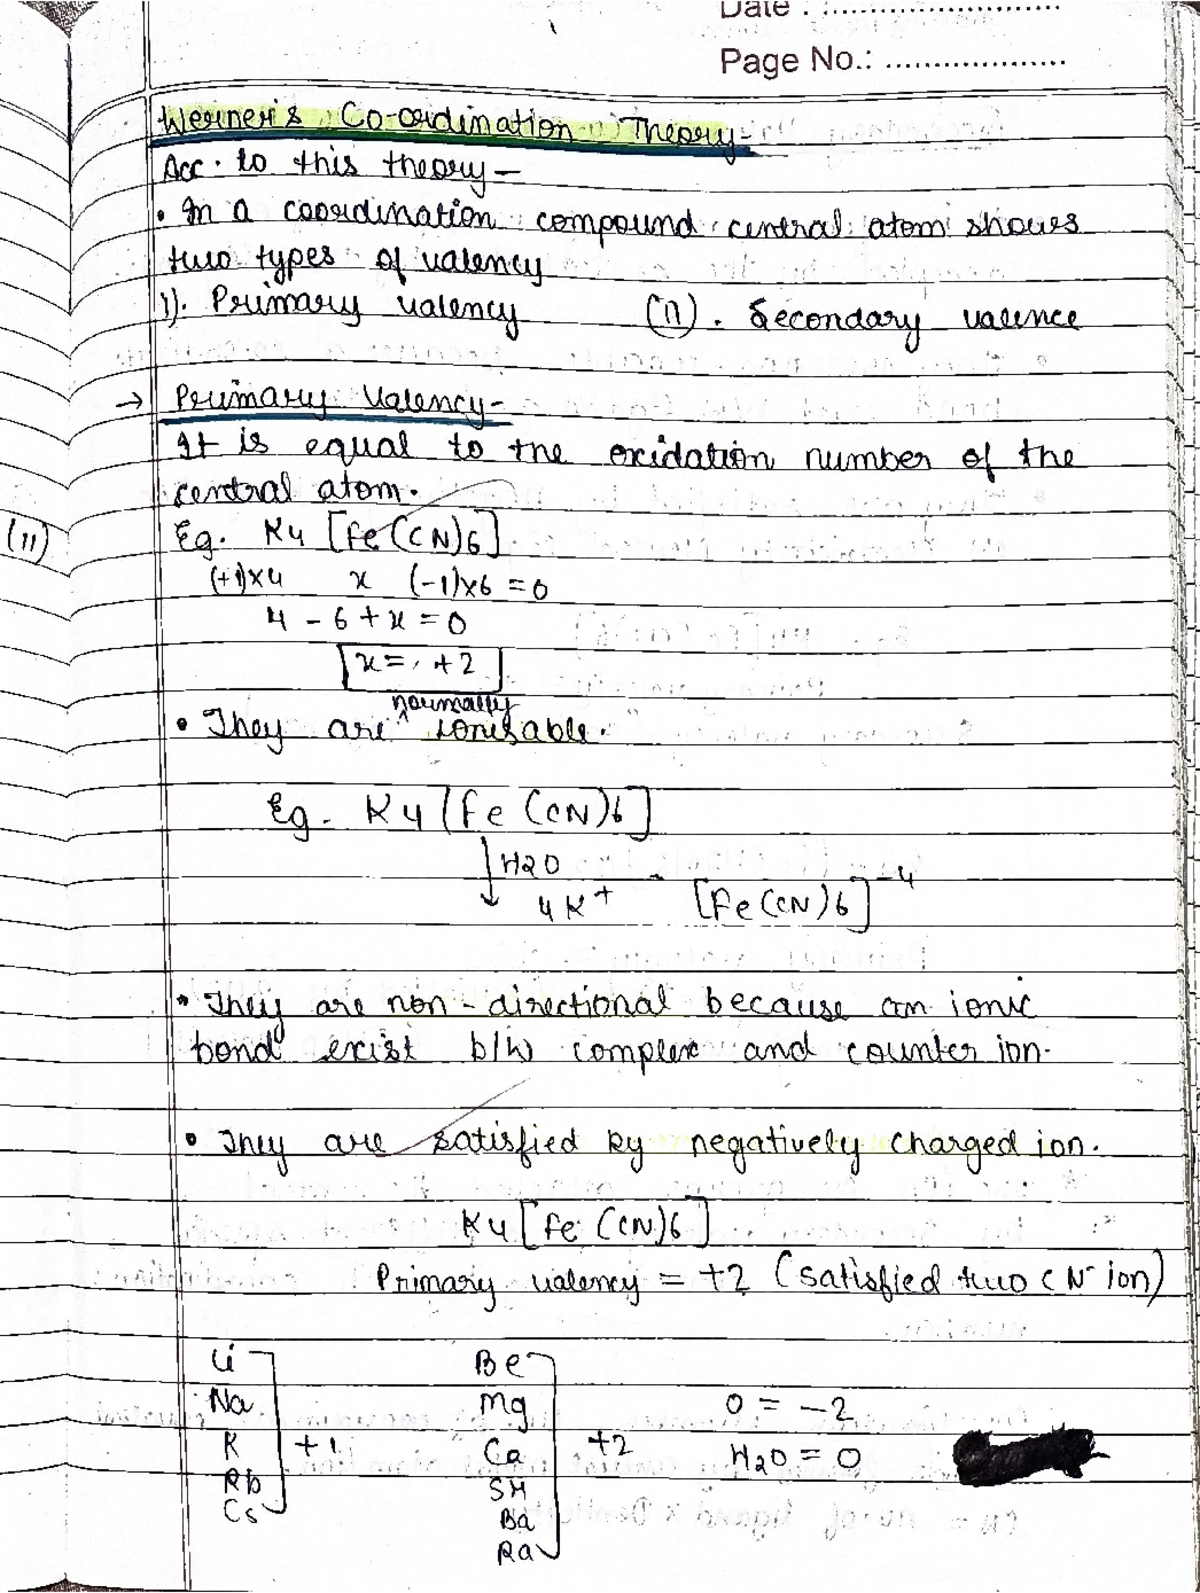 Date : ..........................
Page No.: ...................
Werner's Co-ordination Theory-
Acc. to this theory -
• In a coordination compound central atom shows
two types of valency
1). Primary valency (11). Secondary valence
→ Primary Valency-
It is equal to the oxidation number of the
central atom.
(11) Eg. K4 [Fe(CN)6]
(+1)x4 x (-1)x6 = 0
4 - 6 + x = 0
x = +2
normally
• They are ^ ionisable.
Eg. K4 [Fe (CN)6]
↓ H2O
4K+ [Fe(CN)6]-4
• They are non-directional because an ionic
bond exist b/w complex and counter ion.
• They are satisfied by negatively charged ion.
K4 [Fe (CN)6]
Primary valency = +2 (satisfied two CN- ion)
Li Be
Na Mg O = -2
K +1 Ca +2 H2O = 0
Rb Sr
Cs Ba
Ra